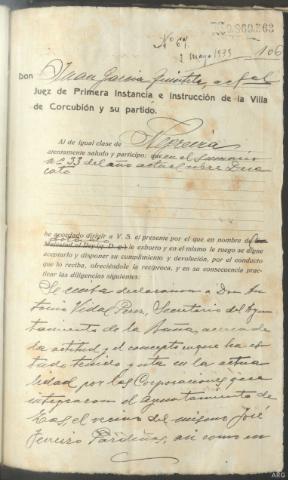 Nº 67.
2 Mayo 1933
106
Don Juan García
Juez de Primera Instancia e Instrucción de la Villa
de Corcubión y su partido.
Al de igual clase de Noreira
atentamente saludo y participo: que en el Sumario
nº 33 del año actual sobre Desa
cato
he acordado dirigir a V. S. el presente por el que en nombre de
Majestad el Rey (q. D. g.) le exhorto y en el mismo le ruego se digne
aceptarlo y disponer su cumplimiento y devolución, por el conducto
que lo reciba, ofreciéndole la recíproca, y en su consecuencia prac-
ticar las diligencias siguientes.
Se reciba declaración a Don An-
tonio Vidal Pérez, Secretario del Ayun-
tamiento de la Baña, acerca de
la actitud y el concepto en que ha es-
tado tenido y esta en la actua-
lidad por las Corporaciones que
integraron el Ayuntamiento de
Zas, el vecino del mismo José
Ferreiro Pardiñas, así como en
ARG